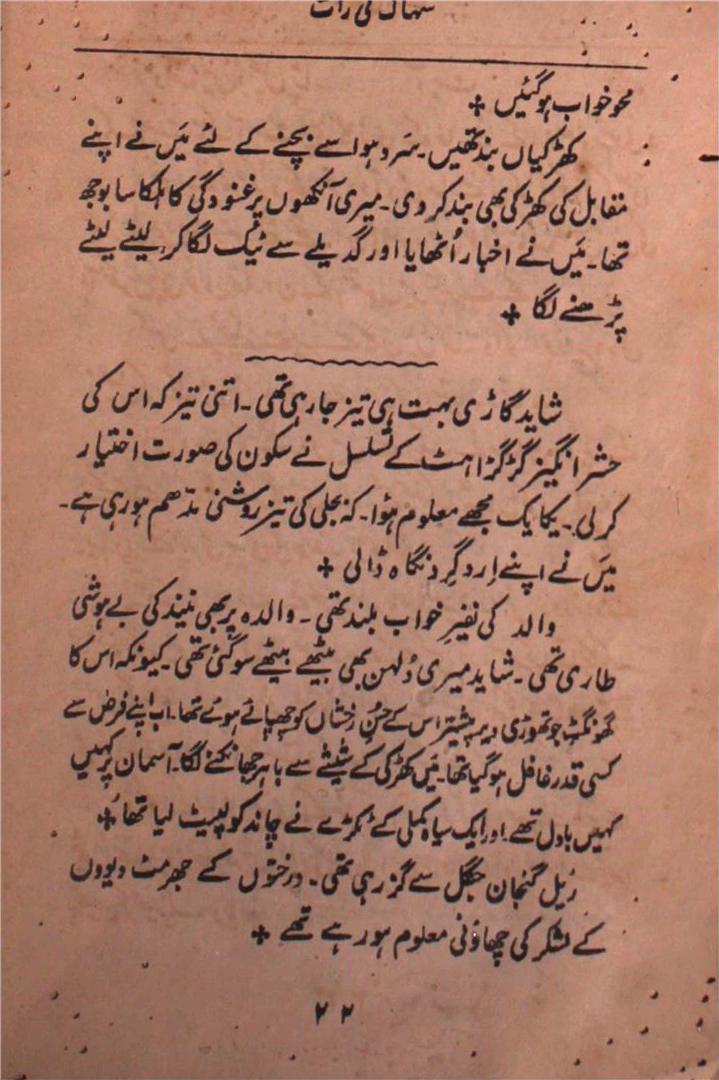 سہاگ کی رات
محو خواب ہوگئیں +
کھڑکیاں بند تھیں۔ سرد ہوا سے بچنے کے لئے مَیں نے اپنے
مقابل کی کھڑکی بھی بند کر دی۔ میری آنکھوں پر غنودگی کا ہلکا سا بوجھ
تھا۔ مَیں نے اخبار اُٹھایا اور گدیلے سے ٹیک لگا کر لیٹے لیٹے
پڑھنے لگا +
شاید گاڑی بہت ہی تیز جا رہی تھی۔ اتنی تیز کہ اس کی
حشر انگیز گڑگڑاہٹ کے تسلسل نے سکون کی صورت اختیار
کر لی۔ یکایک مجھے معلوم ہؤا۔ کہ بجلی کی تیز روشنی مدّھم ہو رہی ہے۔
مَیں نے اپنے اِرد گِرد نگاہ ڈالی +
والد کی نفیرِ خواب بلند تھی۔ والدہ پر بھی نیند کی بے ہوشی
طاری تھی۔ شاید میری دُلہن بھی بیٹھے بیٹھے سو گئی تھی۔ کیونکہ اس کا
گھونگٹ جو تھوڑی دیر پیشتر اس کے حسُنِ رخشاں کو چھپائے ہوئے تھا۔ اب اپنے فرض سے
کسی قدر غافل ہو گیا تھا۔ مَیں کھڑکی کے شیشے سے باہر جھانکنے لگا۔ آسمان پر کہیں
کہیں بادل تھے۔ اور ایک سیاہ کملی کے ٹکڑے نے چاند کو لپیٹ لیا تھا +
ریل گنجان جنگل سے گزر رہی تھی۔ درختوں کے جھرمٹ دیووں
کے لشکر کی چھاؤنی معلوم ہو رہے تھے +
۲۲